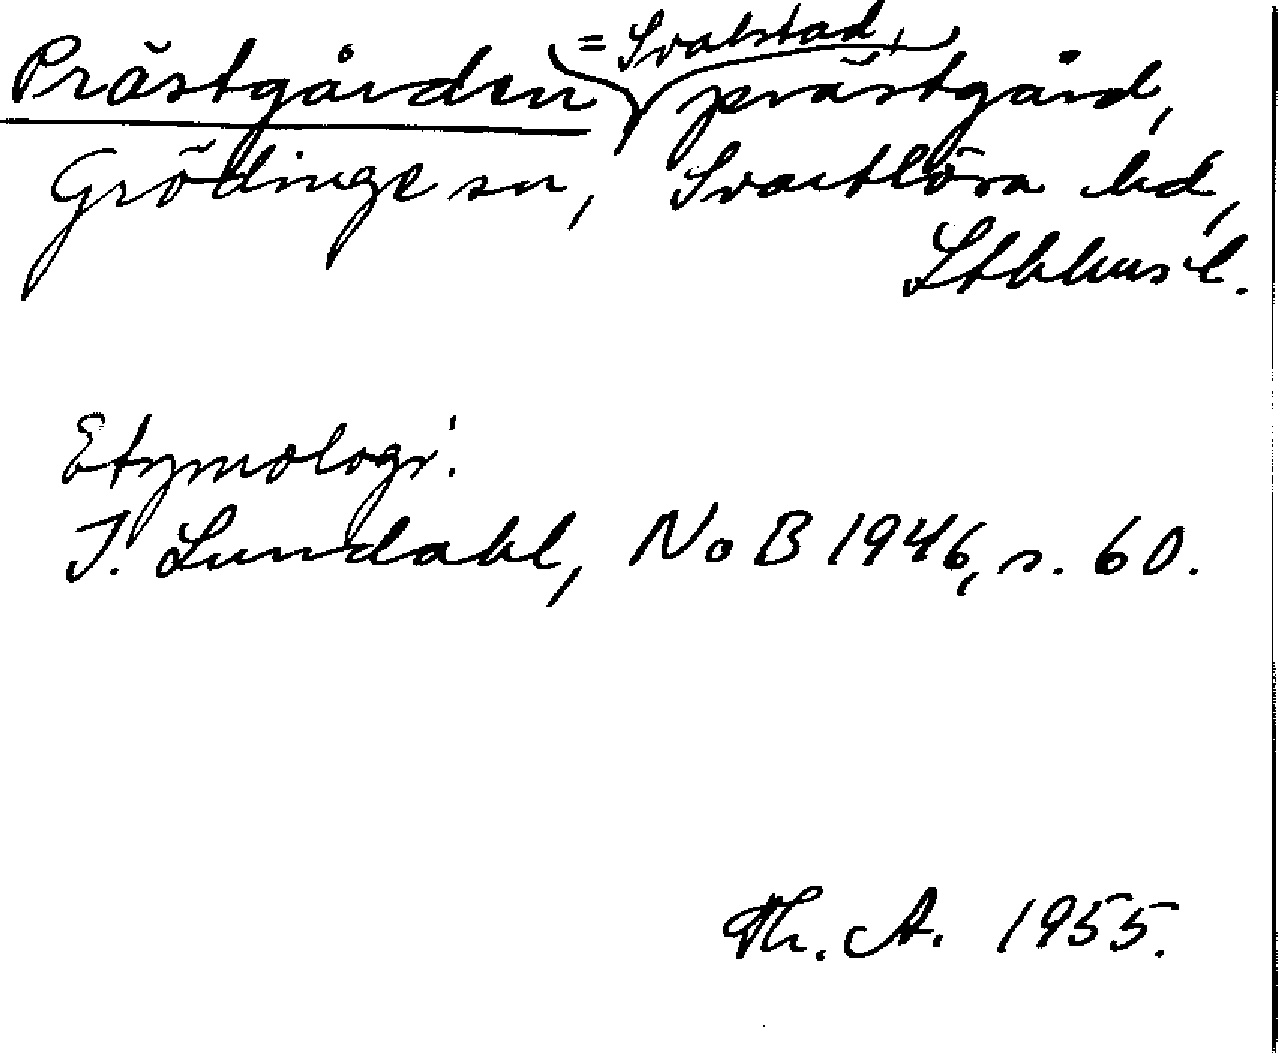 Prästgården = Svalstad, prästgård,
Grödinge sn, Svartlösa hd,
Sthlms l.
Etymologi:
I. Lundahl, NoB 1946, s. 60.
Th. A. 1955.